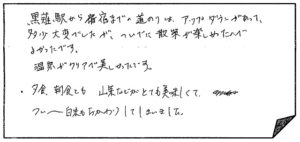 黒薙駅から宿までの道のりは、アップダウンがあって、
多少大変でしたが、ついでに散策が楽しめたので
よかったです。
温泉がクリアで美しかったです。
・夕食 朝食とも 山菜などがとても美味しくて、
ついつい 白米もおかわりしてしまいました。